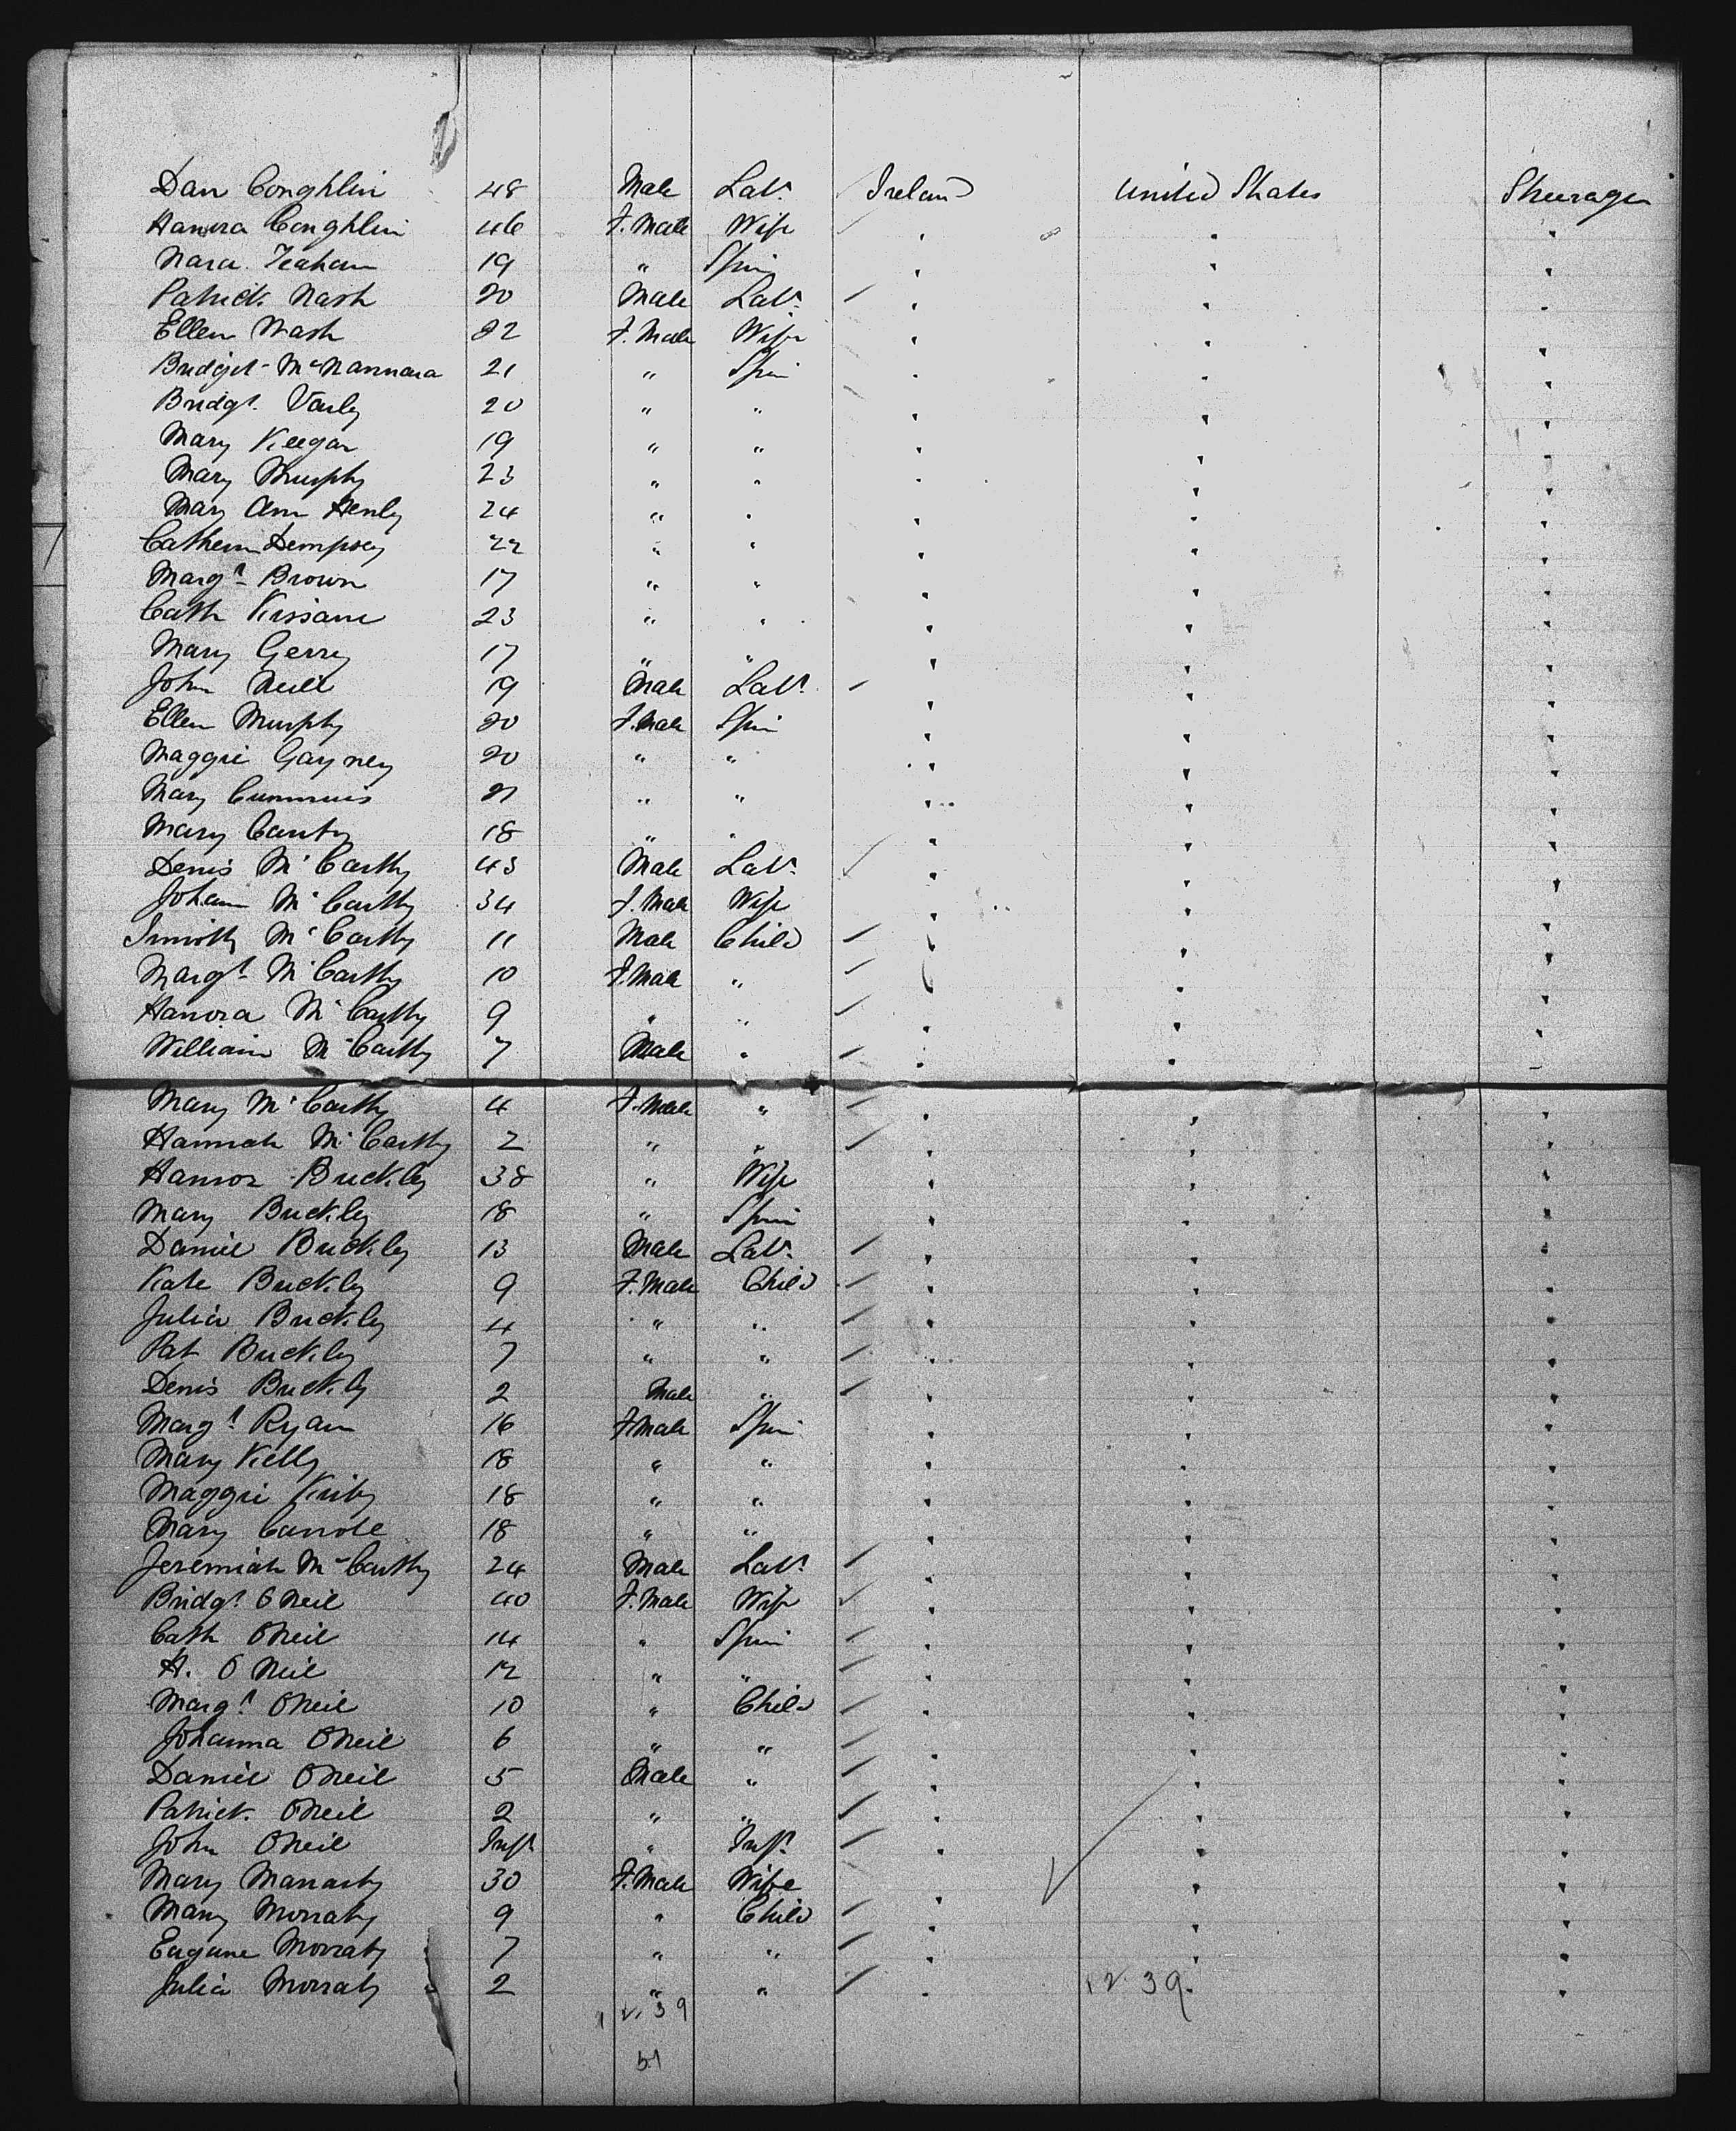 Dan Coughlin 48 Male Labr Ireland United States Steerage
Hanora Coughlin 46 F.Male Wife
Nora 19 " Spin
Patrick Nash 20 Male Labr
Ellen Nash 22 F.Male Wife
Bridget McNannara 21 " Spin
Bridgt. Varley 20 " "
Mary Keegan 19 " "
Mary Murphy 23 " "
Mary Ann Henly 24 " "
Cathern Dempsey 22 " "
Margt Brown 17 " "
Cath Kissane 23 " "
Mary Gerry 17 " "
John Neill 19 Male Labr
Ellen Murphy 20 F.Male Spin
Maggie Gayney 20 " "
Mary Cummins 21 " "
Mary Canty 18 " "
Denis McCarthy 43 Male Labr
Johan McCarthy 34 F.Male Wife
McCarthy 11 Male Child
Margt McCarthy 10 F.Male "
Hanora McCarthy 9 " "
William McCarthy 7 Male "
Mary McCarthy 4 F.Male "
Hannah McCarthy 2 " "
Buckley 38 " Wife
Mary Buckley 18 " Spin
Daniel Buckley 13 Male Labr
Kate Buckley 9 F.Male Child
Julia Buckley 4 " "
Pat Buckley 7 " "
Denis Buckley 2 Male "
Margt Ryan 16 F.Male Spin
Mary Kelly 18 " "
Maggie Kirby 18 " "
Mary 18 " "
Jeremiah McCarthy 24 Male Labr
Bridgt ONeil 40 F.Male Wife
Cath ONeil 14 " Spin
H. ONeil 12 " "
Margt ONeil 10 " Child
Johanna ONeil 6 " "
Daniel ONeil 5 Male "
Patrick ONeil 2 " "
John ONeil Inft " Inft
Mary 30 F.Male Wife
Mary Morraty 9 " Child
Eugune Morraty 7 " "
Julia Morraty 2 " " 12.39
12.39
51